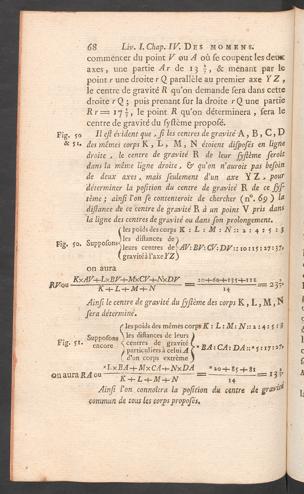 68 Liv. I. Chap. IV. DES MOMENS.
commencer du point V ou A où se coupent les deux
axes, une partie Ar de 13 , & menant par le
point r une droite r Q parallèle au premier axe Y Z,
le centre de gravité R qu'on demande sera dans cette
droite r Q; puis prenant sur la droite r Q une partie
R r = 17 , le point R qu'on déterminera, sera le
centre de gravité du système proposé.
Fig. 50 Il est évident que, si les centres de gravité A, B, C, D
& 51. des mêmes corps K, L, M, N étoient disposés en ligne
droite, le centre de gravité R de leur système seroit
dans la même ligne droite, & qu'on n'auroit pas besoin
de deux axes, mais seulement d'un axe YZ, pour
déterminer la position du centre de gravité R de ce sys-
tème; ainsi l'on se contenteroit de chercher (n°. 69) la
distance de ce centre de gravité R à un point V pris dans
la ligne des centres de gravité ou dans son prolongement.
les poids des corps K : L : M : N :: 2 : 4 : 5 : 3
les distances de
Fig. 50. Supposons leurs centres de AV : BV : CV : DV :: 10 : 15 : 27 : 37,
gravité à l'axe YZ
on aura
RV ou K×AV+L×BV+M×CV+N×DV / K+L+M+N = 20+60+135+111 / 14 = 23
Ainsi le centre de gravité du système des corps K, L, M, N
sera déterminé.
les poids des mêmes corps K : L : M : N :: 2 : 4 : 5 : 3
Fig. 51. Supposons les distances de leurs
encore centres de gravité BA : CA : DA :: 5 : 17 : 27,
particulières à celui A
d'un corps extrême
on aura RA ou L×BA+M×CA+N×DA / K+L+M+N = 20+85+81 / 14 = 13
Ainsi l'on connoîtra la position du centre de gravité
commun de tous les corps proposés.